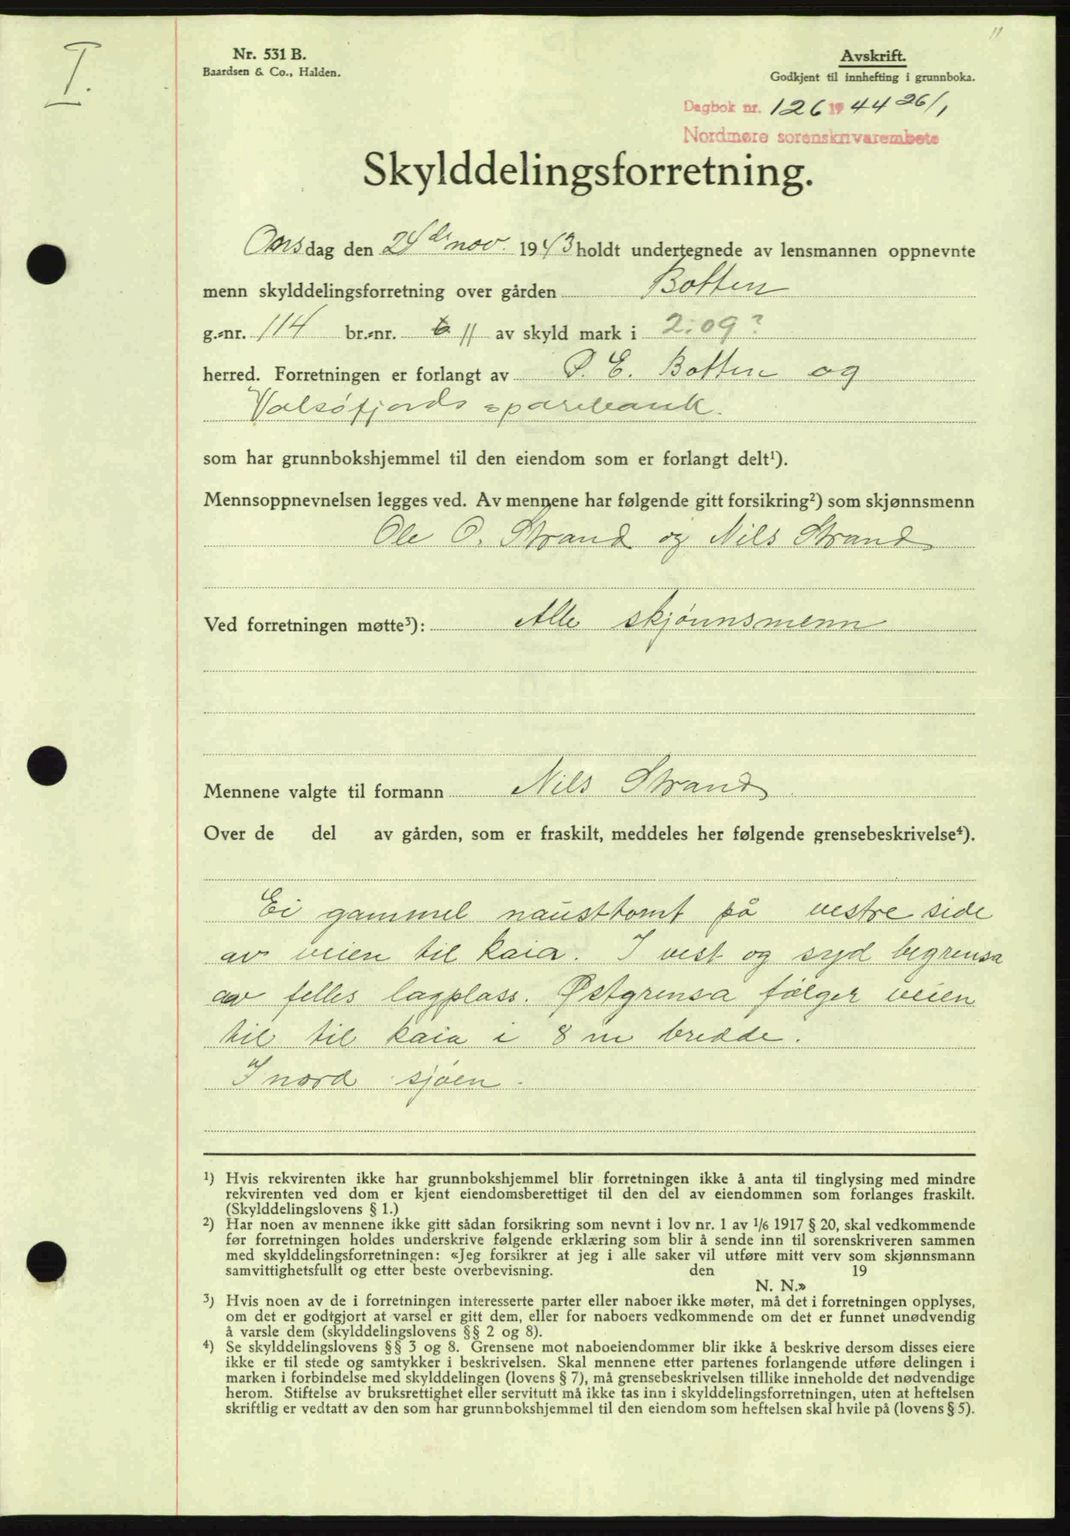 I.
Nr. 531 B.
Baardsen & Co., Halden.
Avskrift.
Godkjent til innhefting i grunnboka.
Dagbok nr. 126 1944 26/1
Nordmøre sorenskrivarembete
Skylddelingsforretning.
Onsdag den 24de nov. 1943 holdt undertegnede av lensmannen oppnevnte
menn skylddelingsforretning over gården Botten
g.-nr. 114 br.-nr. 6 11 av skyld mark i 2.09?
herred. Forretningen er forlangt av P. E. Botten og
Valsøfjords sparebank.
som har grunnbokshjemmel til den eiendom som er forlangt delt¹).
Mennsoppnevnelsen legges ved. Av mennene har følgende gitt forsikring²) som skjønnsmenn
Ole O. Strand og Nils Strand
Ved forretningen møtte³): Alle skjønnsmenn
Mennene valgte til formann Nils Strand
Over de del av gården, som er fraskilt, meddeles her følgende grensebeskrivelse⁴).
Ei gammel nausttomt på vestre side
av veien til kaia. I vest og syd begrensa
av felles lagplass. Østgrensa følger veien
til til kaia i 8 m bredde.
I nord sjøen.
¹) Hvis rekvirenten ikke har grunnbokshjemmel blir forretningen ikke å anta til tinglysing med mindre
rekvirenten ved dom er kjent eiendomsberettiget til den del av eiendommen som forlanges fraskilt.
(Skylddelingslovens § 1.)
²) Har noen av mennene ikke gitt sådan forsikring som nevnt i lov nr. 1 av 1/6 1917 § 20, skal vedkommende
før forretningen holdes underskrive følgende erklæring som blir å sende inn til sorenskriveren sammen
med skylddelingsforretningen: «Jeg forsikrer at jeg i alle saker vil utføre mitt verv som skjønnsmann
samvittighetsfullt og etter beste overbevisning. den 19
N. N.»
³) Hvis noen av de i forretningen interesserte parter eller naboer ikke møter, må det i forretningen opplyses,
om det er godtgjort at varsel er gitt dem, eller for naboers vedkommende om det er funnet unødvendig
å varsle dem (skylddelingslovens §§ 2 og 8).
⁴) Se skylddelingslovens §§ 3 og 8. Grensene mot naboeiendommer blir ikke å beskrive dersom disses eiere
ikke er til stede og samtykker i beskrivelsen. Skal mennene etter partenes forlangende utføre delingen i
marken i forbindelse med skylddelingen (lovens § 7), må grensebeskrivelsen tillike inneholde det nødvendige
herom. Stiftelse av bruksrettighet eller servitutt må ikke tas inn i skylddelingsforretningen, uten at heftelsen
skriftlig er vedtatt av den som har grunnbokshjemmel til den eiendom som heftelsen skal hvile på (lovens § 5).